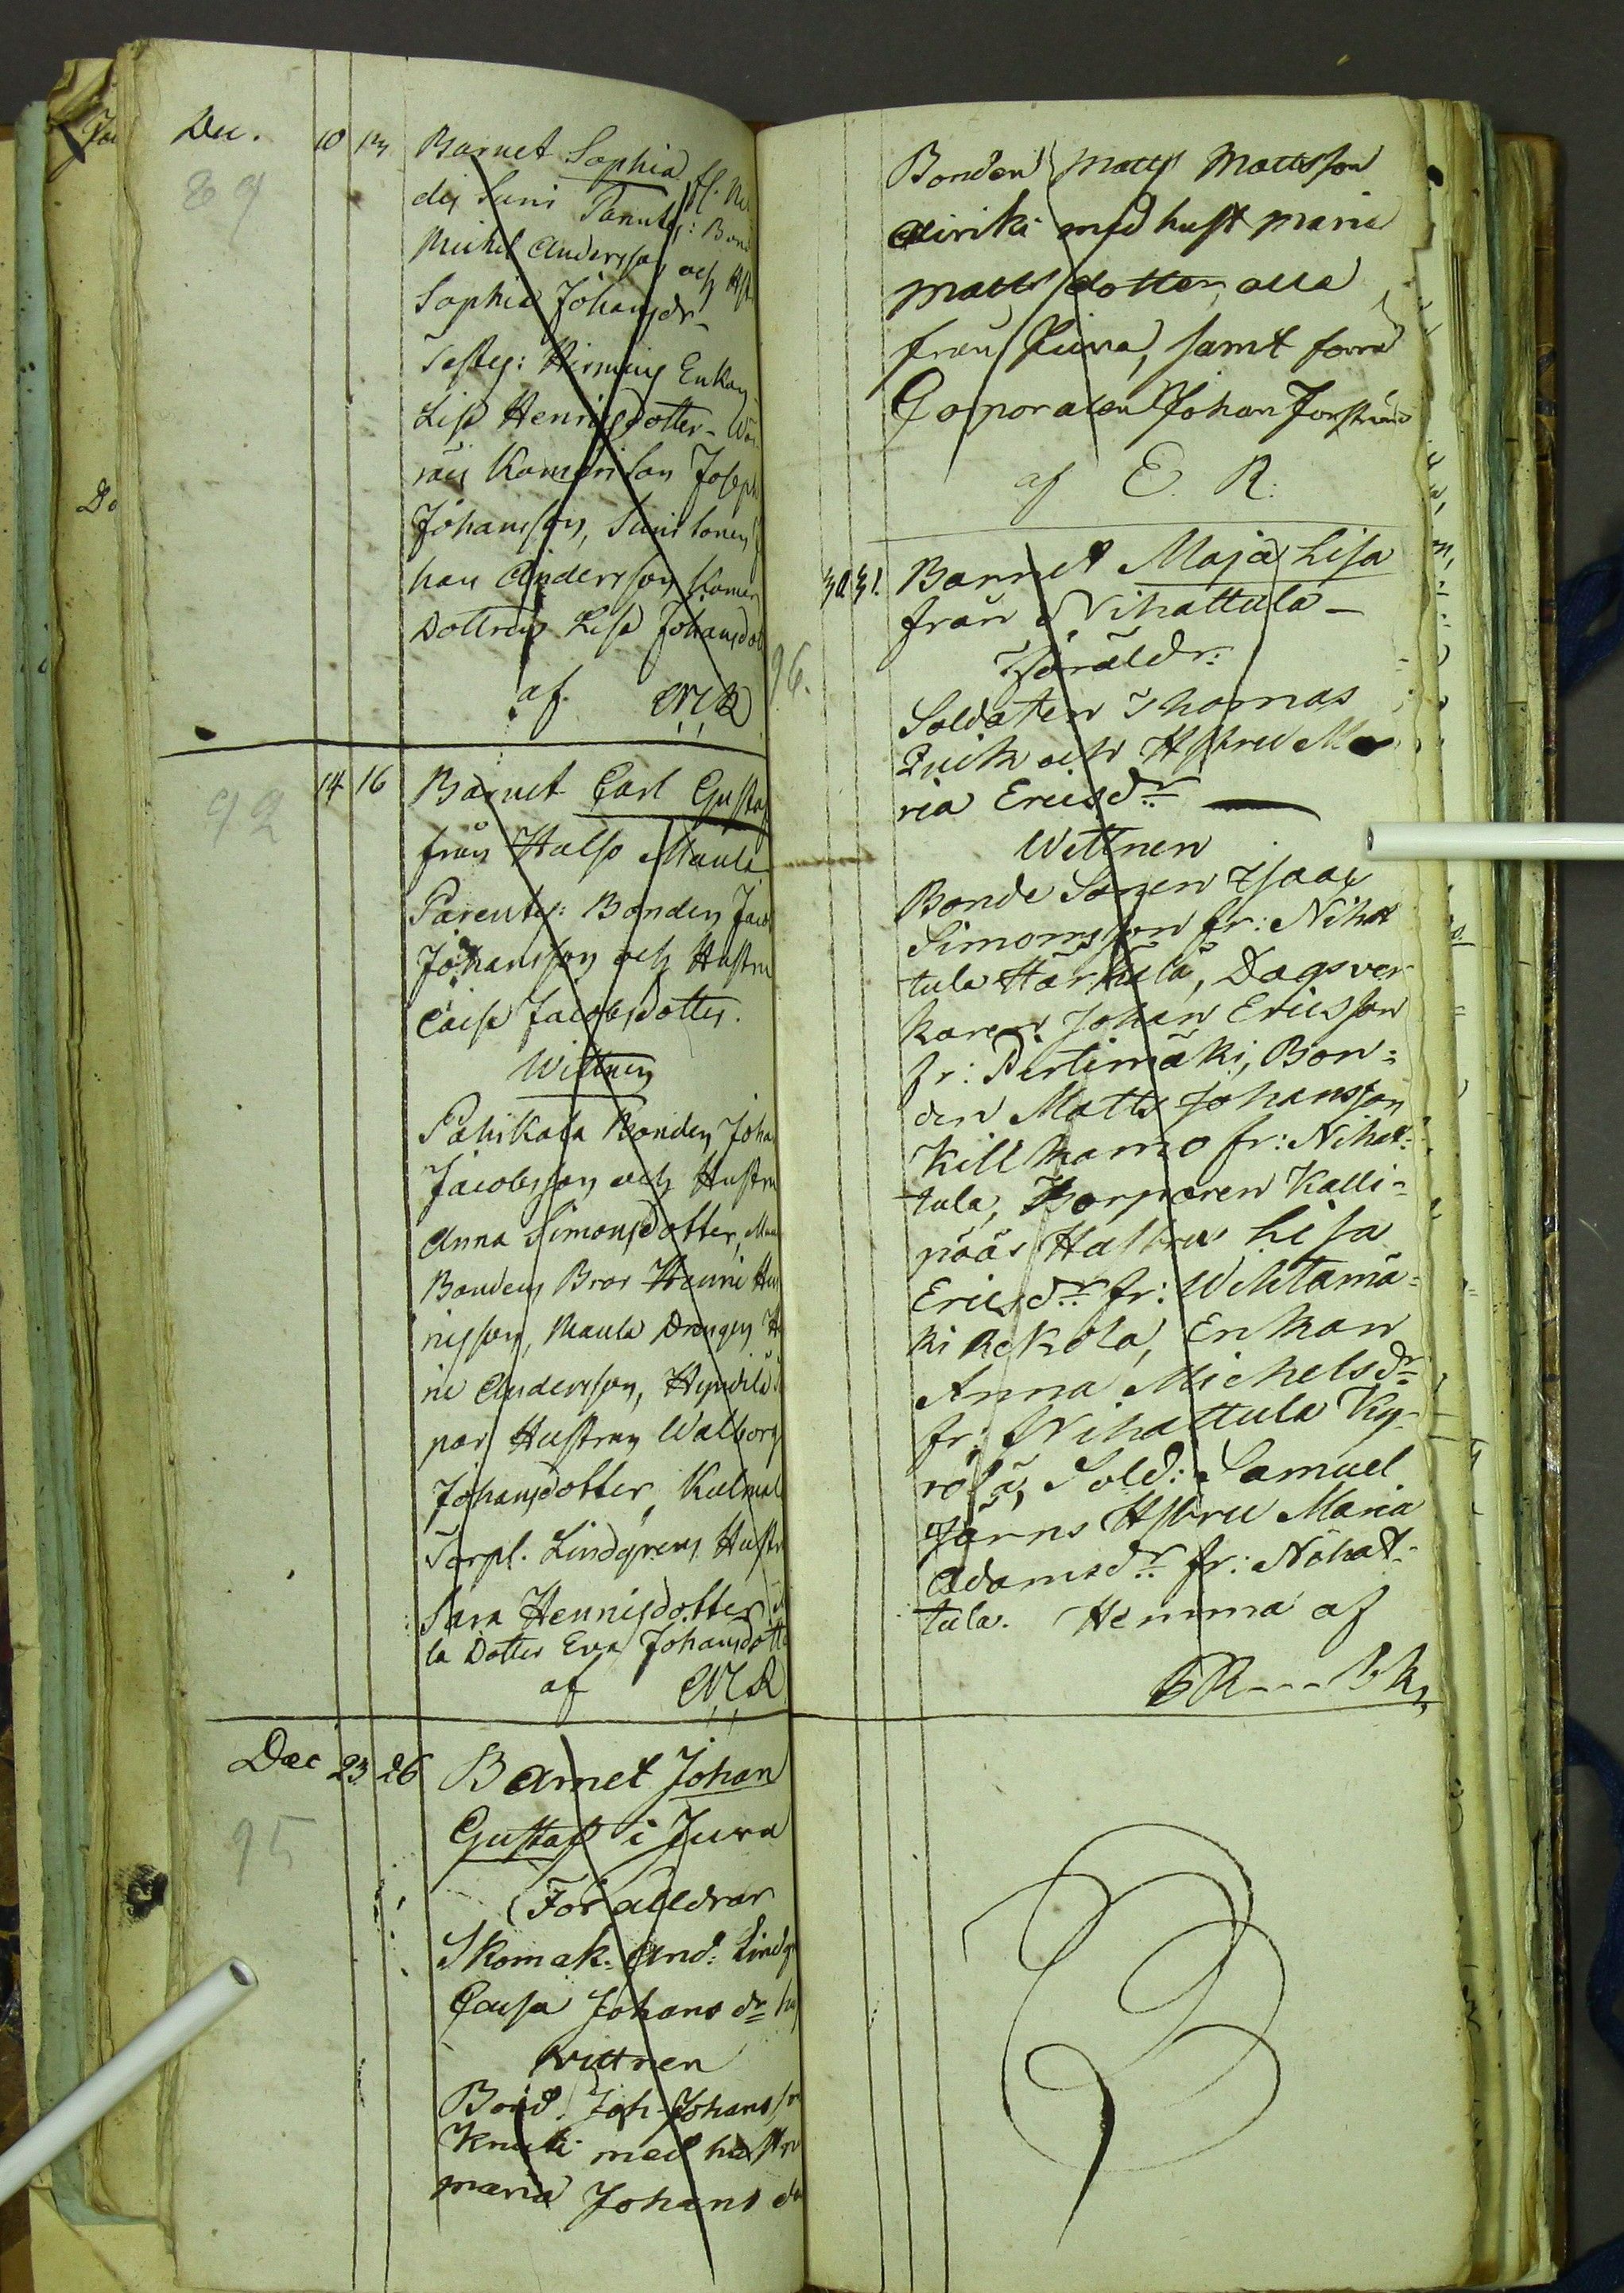 Dec. 10 13 Barnet Sophia fr. No
89
dis Suni Parentes: Bon
Michel Andersson och Hst
Sophia Johansdr
Testes: Hirmus Enkan
Lisa Henricsdotter
Kamari Son Joseph
Johansson, Suni Sonen
han Andersson Kamar
Dottren Lisa Johansdot
af N R
92
14 16 Barnet Carl Gustaf
från Halso Maula
Parentes: Bonden Jac
Johansson och Hustru
Caisa Jacobsdotter.
Wittnen
Pahikala Bonden Joha
Jacobsson och Hustru
Anna Simonsdotter, Mau
Bondens Bror Henric Hen
ricsson, Maula Drengen H
ric Andersson,
par Hustrun Walborg
Johansdotter
Torpl. Lindgrens Hustr
Sara Henricsdotter
la Dotter Eva Johansdott
af N R
Dec 23 26 Barnet Johan
95
Gustaf i Juva
Föralldrar
Skomak: And: Lindgr
Caisa Johans dr hu
Wittnen
Bond. Joh. Johansso
Knuti med hustru
maria Johans do
Bonden Matts Mattsson
Airiki med hust Maria
Matts dotter, alla
från Juva, samt forra
Corporalen Johan Forström
af E. R.
96.
30 31. Barnet Maja Lisa
från Nihattula
Föräldr:
Soldaten Thomas
Quick och Hstru Ma
ria Ericsdr
Wittnen
Bonde Sonen Isaac
Simonsson fr: Nihat
tula Härkälä, Dagsver
karen Johan Ericsson
fr: Pertimäki, Bon=
den Matts Johansson
Killkamo fr: Nihat=
tula, Torparen Kalli=
pääs Hustru Lisa
Ericsdr fr: Wehtamä=
ki Rekola, Enkan
Anna Michelsdr
fr: Nihattula Ky=
rölä, Sold: Samuel
Järns Hstru Maria
Adamsdr fr: Nihat=
tula. Hemma af